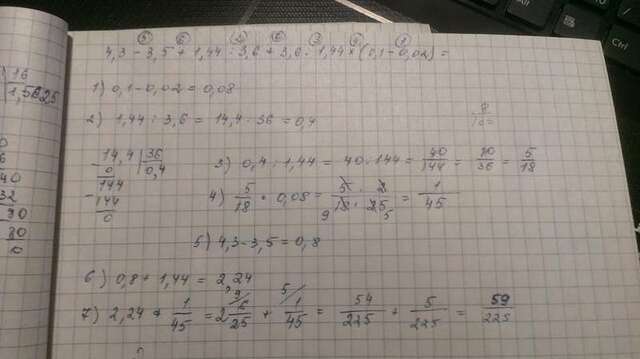 4,3 - 3,5 + 1,44 : 3,6 + 3,6 : 1,44 × (0,1 - 0,02) =
1) 0,1 - 0,02 = 0,08
2) 1,44 : 3,6 = 14,4 : 36 = 0,4
14,4 | 36
0 | 0,4
144
- 144
0
3) 0,4 : 1,44 = 40 : 144 = 40/144 = 10/36 = 5/18
4) 5/18 · 0,08 = 5/18 · 2/25 = 1/45
9 5
5) 4,3 - 3,5 = 0,8
6) 0,8 + 1,44 = 2,24
7) 2,24 + 1/45 = 2 6/25 + 1/45 = 54/225 + 5/225 = 59/225
16
1,5625
40
32
80
80
0